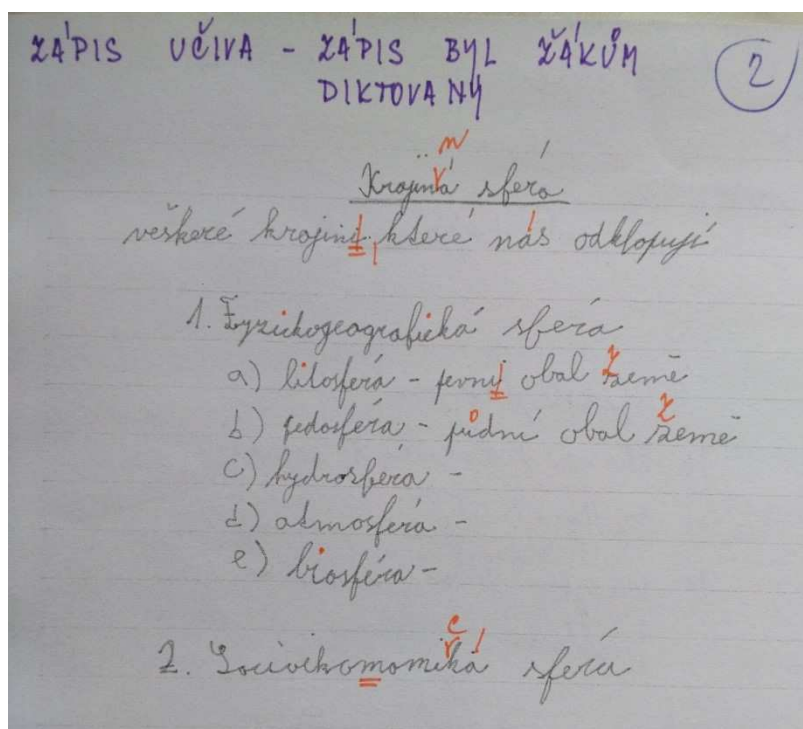 ZÁPIS UČIVA - ZÁPIS BYL ŽÁKŮM
DIKTOVANÝ
2
n
Krajiná sféra
veškeré krajiny, které nás odklopují
1. Fyzickogeografická sféra
a) litosféra - pevný obal země
b) pedosféra - půdní obal země
c) hydrosféra -
d) atmosféra -
e) biosféra -
c
2. Socivikomomiká sféra